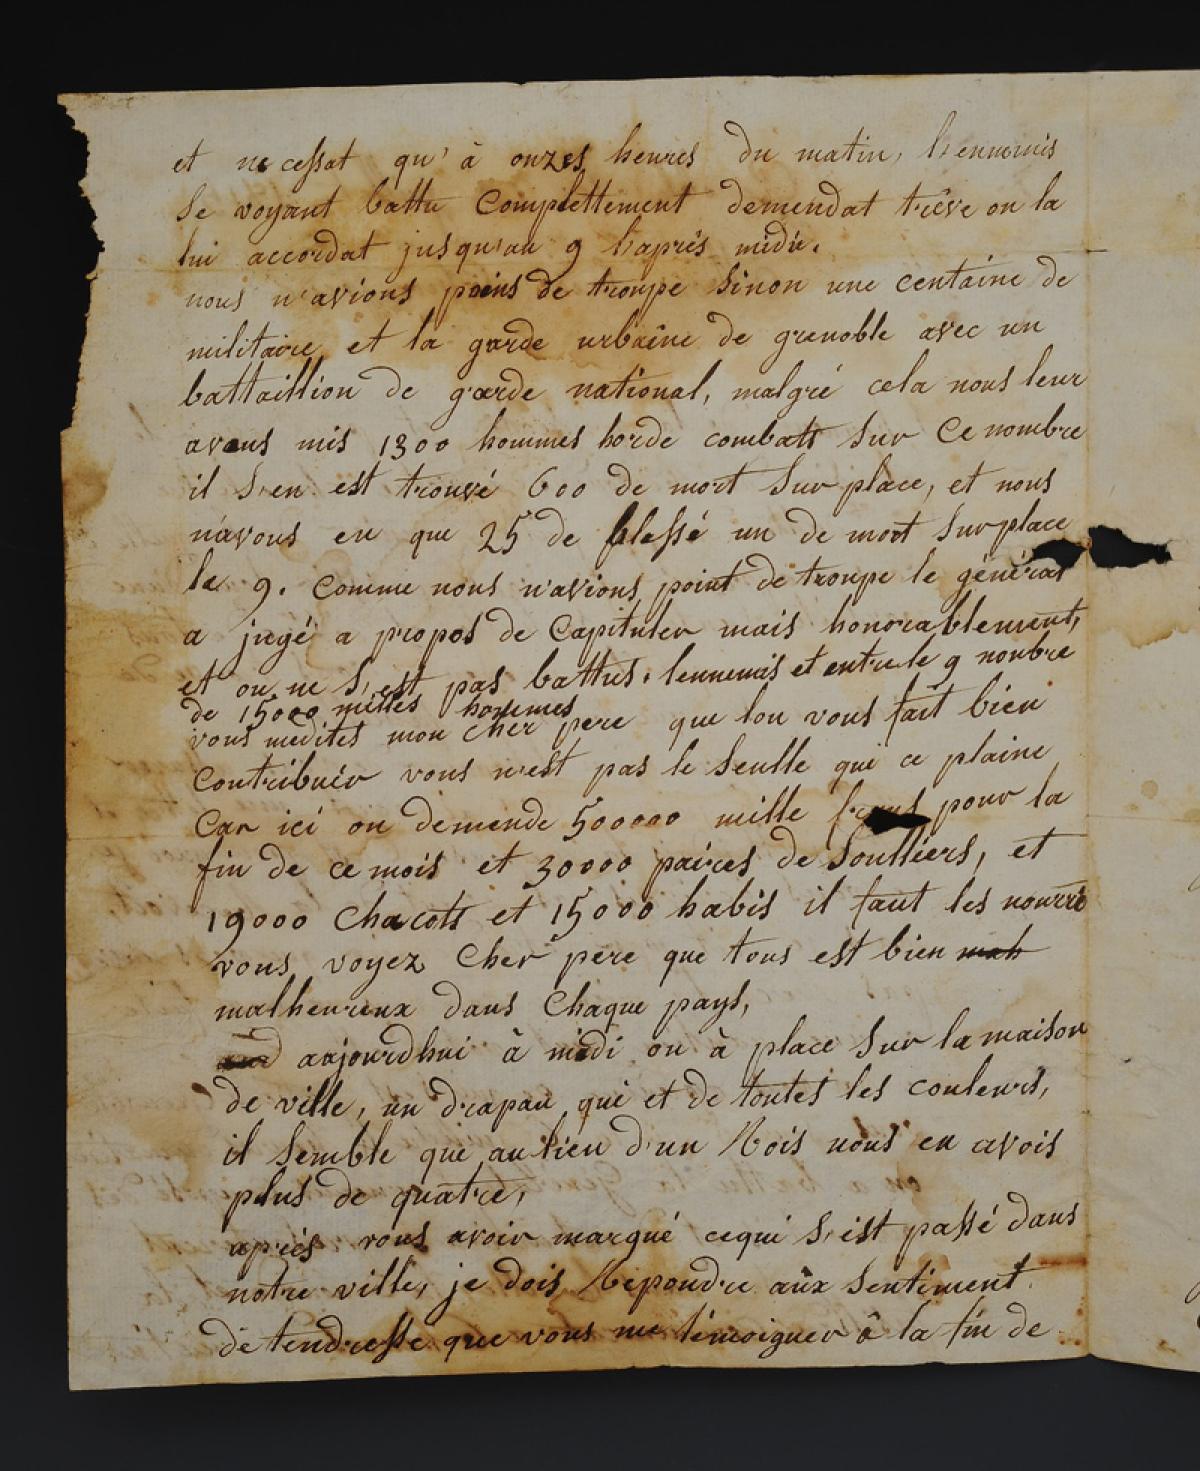 et ne cessat qu'à onzes heures du matin, l'ennemis
se voyant battu Complettement demendat trêve on la
lui accordat jusqu'au 9 l'après midu.
nous n'avions poins de troupe sinon une centaine de
militaire et la garde urbaine de grenoble avec un
battaillion de garde national, malgré cela nous leur
avons mis 1300 hommes horde combatt sur Ce nombre
il s'en est trouvé 600 de mort sur place, et nous
n'avons eu que 25 de blessé un de mort sur place
le 9. Comme nous n'avions point de troupe le général
a jugé a propos de Capituler mais honorablement,
et on ne s'est pas battus. lennemis et entre le 9 nonbre
de 15000 milles hommes
vous medites mon cher pere que lon vous fait bien
Contribuér vous n'est pas le seulle qui ce plaine
Car ici on demende 500000 mille pour la
fin de ce mois et 30000 paires de soulliers, et
19000 Chacots et 15000 habis il faut les nourri
vous voyez Cher pere que tous est bien mah
malheureux dans Chaque pays,
aujourdhui à midi on à place sur la maison
de ville, un drapau qui et de toutes les couleurs,
il semble que au lieu d'un Rois nous en avois
plus de quatre,
après vous avoir marqué cequi s'est passé dans
notre ville, je dois Repondre aux sentiment
de tendresse que vous me témoigner ô la fin de